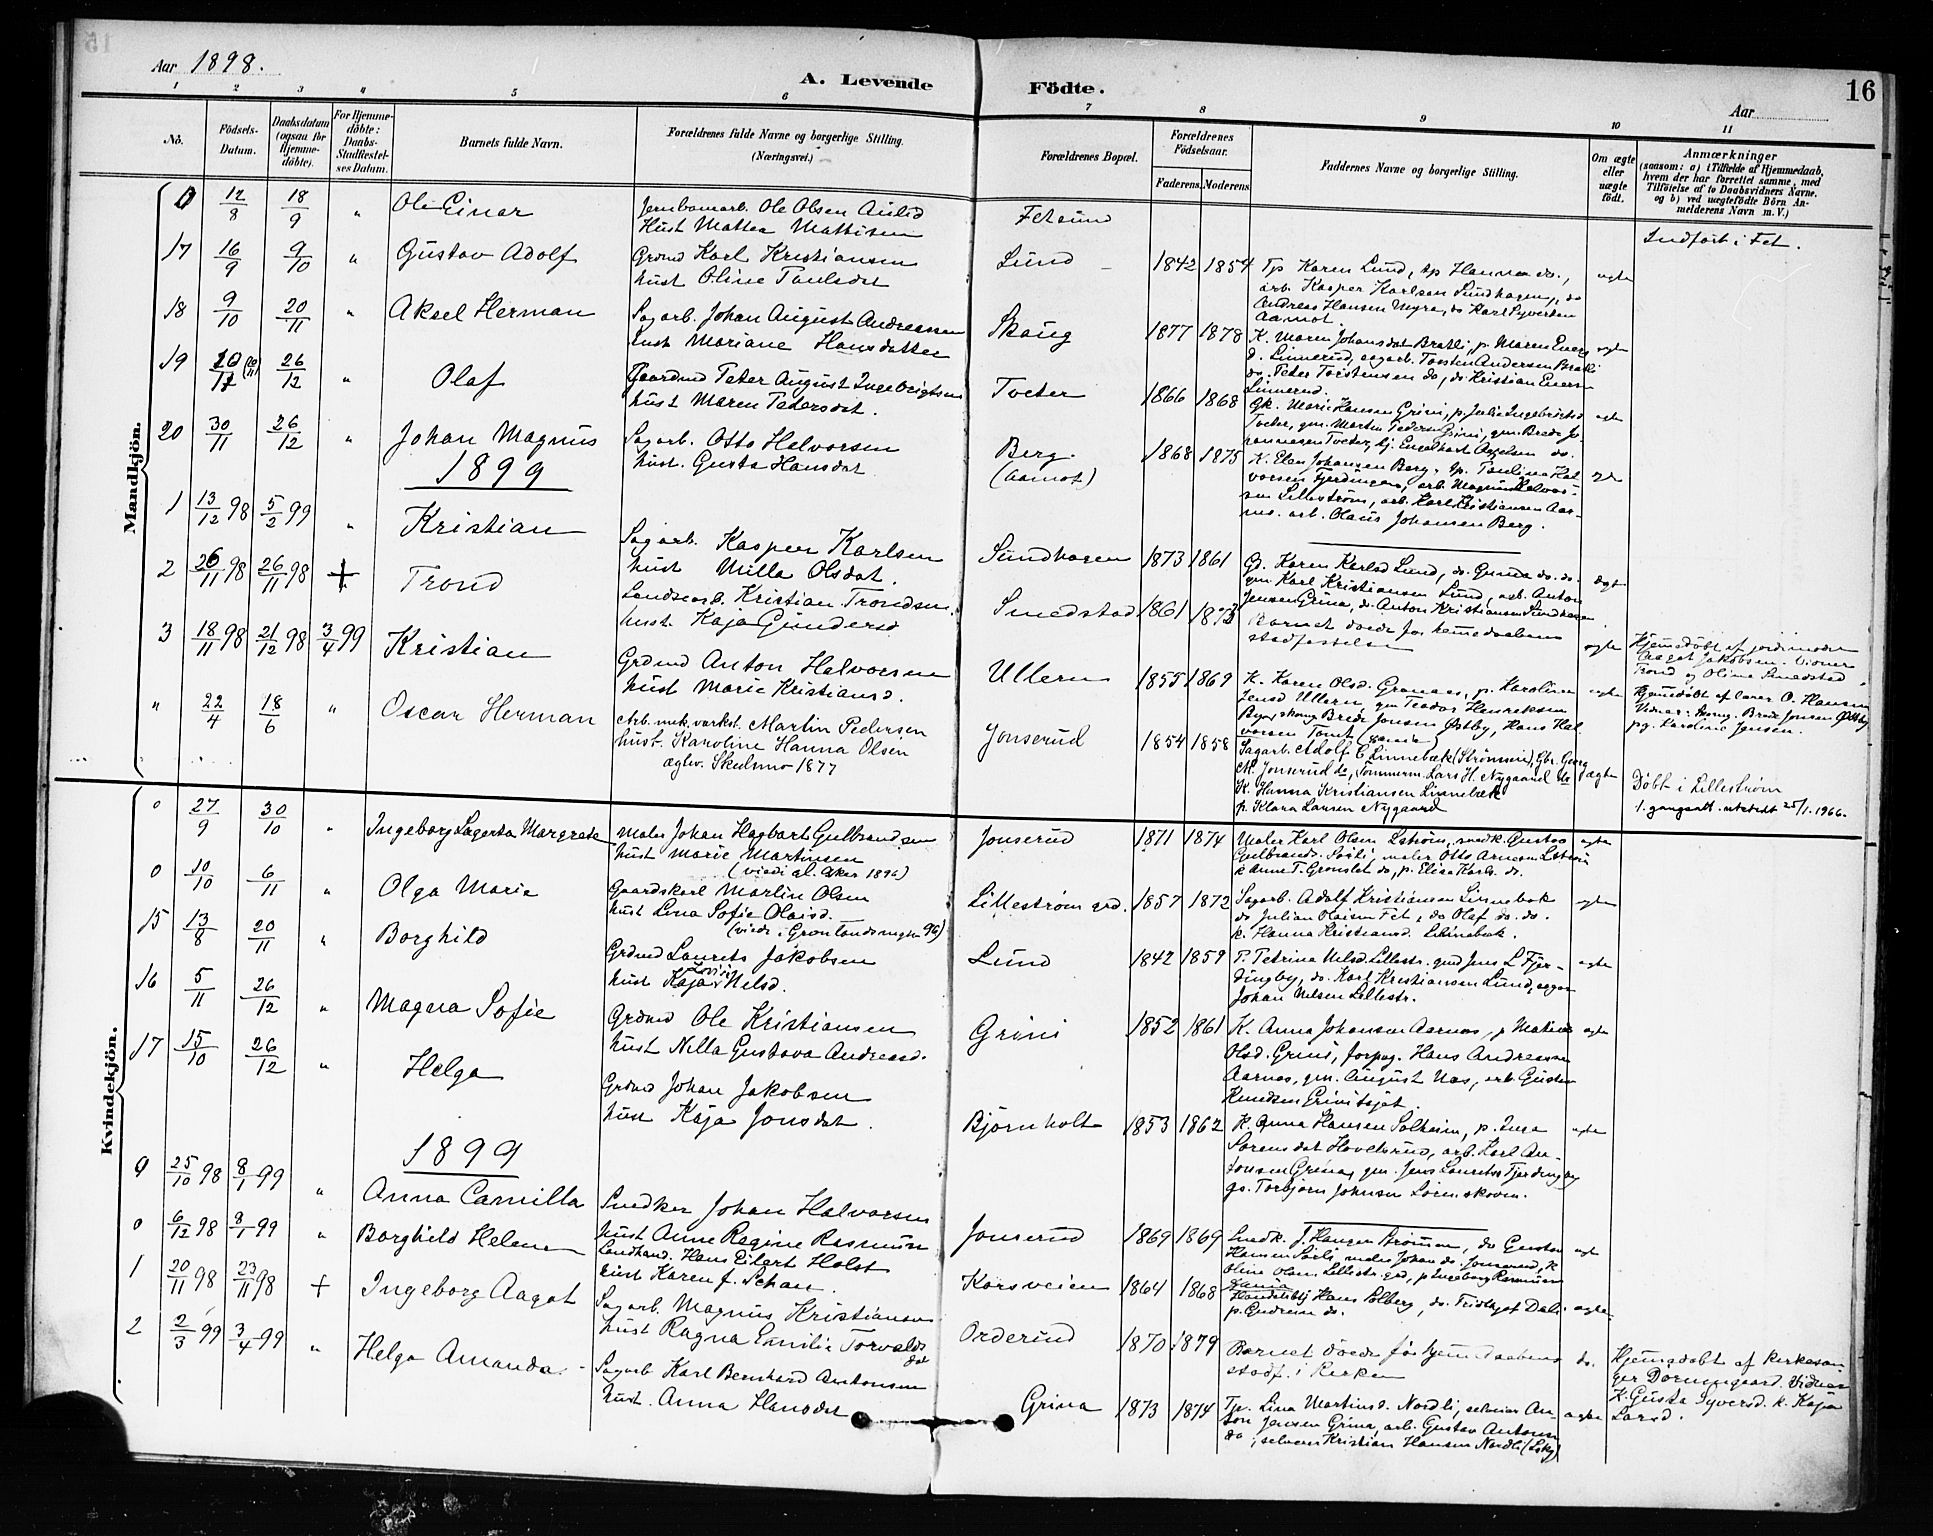 Aar 1898.
A. Levende Födte.
Aar
16
1 2 3 4 5 6 7 8 9 10 11
No.
Födsels-Datum.
Daabsdatum (ogsaa for Hjemme-döbte).
For Hjemme-döbte: Daabs-Stadfæstelses Datum.
Barnets fulde Navn.
Forældrenes fulde Navne og borgerlige Stilling. (Næringsvei.)
Forældrenes Bopæl.
Forældrenes Födselsaar.
Faderens. Moderens.
Faddernes Navne og borgerlige Stilling.
Om ægte eller uægte födt.
Anmærkninger
(saasom: a) i Tilfælde af Hjemmedaab, hvem der har forrettet samme, med Tilföielse af to Daabsvidners Navne, og b) ved uægtefödte Börn Anmelderens Navn m. V.)
Mandkjön.
0 12/8 18/9 " Ole Einar
Jernbanearb. Ole Olsen
Hust Mattea Mathisen
Fetsund
Indfört i Fet.
17 16/9 9/10 " Gustav Adolf
Grdmd Karl Kristiansen
hust Oline Paulsdat
Lund 1842 1854
Tp Karen Lund, tp Hanna do.,
arb. Kasper Karlsen Sundhagen, do
Andreas Hansen Myra, do Karl Syversen
Aamot.
ægte
18 9/10 20/11 " Aksel Herman
Sagarb. Johan August Andreassen
hust Mariane Hansdatter
Skoug 1877 1878
K. Maren Johansdat Bratli, p. Maren Evens
d. Linnerud, sagarb. Torsten Andersen Bratli
do. Peter Torstensen do, do Kristian Evens
Linnerud.
ægte
19 26/12 " Olaf
Gaardmd Peter August Ingebrigtsen
hust Maren Pedersdat.
Tveter 1866 1868
Gk. Marie Hansen Grini, p. Julie Ingebrigtsd
Tveter, gm. Morten Pedersen Grini, gm. Brede Jo
hannesen Tveter, Engelhart Aagesen do.
ægte
20 30/11 26/12 " Johan Magnus
Sagarb. Otto Halvorsen
hust. Gusta Hansdat
Berg. (Aamot) 1868 1875
K. Elen Johansen Berg, tp. Paulina Hal
vorsen Fjerdingen, arb. Magnus Halvor-
sen Lilleström, arb. Karl Kristiansen Aar-
nes. arb. Olaus Johansen Berg.
1899
1 13/12 98 5/2 99 " Kristian
Sagarb. Kasper Karlsen
hust Milla Olsdat.
Sundhagen 1873 1861
G. Karen Karlsd Lund, do. Gunda do. do.
gm Karl Kristiansen Lund, arb. Anton
Jensen Grina, do. Anton Kristiansen Sundhagen.
ægte
2 26/11 98 26/11 98 + Trond
Kristian Trondsen
hust Kaja Gundersd
Smedstad 1861 1873
Barnet döde för hjemmedaabens
stadfestelse
ægte
Hjemdöbt af jordmoder
Aagot Jakobsen. Vidner
Trond og Oline Smedstad.
3 18/11 98 21/12 98 3/4 99 Kristian
Grdmd Anton Halvorsen
hust Marie Kristiansd.
Ullern 1855 1869
K. Karen Olsd. Granaas, p. Karoline
Jensd Ullern, gm Teodor Henriksen
Brede Jensen Østby, Hans Hal
vorsen Tomt
ægte
Hjemdöbt af lærer O. Hansen
Vidner: Brede Jensen Østby
pg. Karoline Jensen.
" 22/4 18/6 " Oscar Herman
Arb. mek. verkst. Martin Pedersen
hust. Karoline Hanna Olsen
ægtev. Skedsmo 1877
Jonserud 1854 1858
Sagarb. Adolf C. Linnebæk (Strømmen), Gbr. Georg
M. Jonserud do, Tömmerm. Lars H. Nygaard do
K. Hanna Kristiansen Linnebæk
p. Klara Larsen Nygaard
ægte
Döbt i Lilleström
1. gangsatt. utstedt 25/1. 1966.
Kvindekjön.
0 27/9 30/10 " Ingeborg Lagerta Margrete
Maler Johan Hagbart Gulbrandsen
hust Marie Martinsen
(viedi al. Aker 1896)
Jonserud 1871 1874
Maler Karl Olsen Lström, snedk. Gustav
Gulbrands. Sörli, maler Otto Arnesen Lström
k Anne T. Grönslet do, p. Elise Karls. do.
ægte
0 10/10 6/11 " Olga Marie
Gaardskarl Martin Olsen
hust Lina Sofie Olaisd.
(viede i Grönlands 96)
Lilleström grd. 1857 1872
Sagarb. Adolf Kristiansen Linnebæk
do Julian Olaisen Fet, do Olaf do. do.
k. Hanna Kristiansd. Linnebæk.
ægte
15 13/8 20/11 " Borghild
Grdmd Laurits Jakobsen
hust Kaja Lovise Nilsd.
Lund 1842 1859
P. Petrina Nilsd Lillestr. gmd Jens L Fjer-
dingby, do. Karl Kristiansen Lund,
Johan Nilsen Lillestr.
ægte
16 5/11 26/12 " Magna Sofie
Grdmd Ole Kristiansen
hust Nilla Gustava Andreasd.
Grini 1852 1861
K. Anna Johansen Aarnes, p Mathea
Olsd. Grini, forpag. Hans Andreassen
Aarnes, gm. August Næs, arb. Gusten
Knudsen Grinitajet.
ægte
17 15/10 26/12 " Helga
Grdmd Johan Jakobsen
hust Kaja Jonsdat.
Björnholt 1853 1862
K. Anna Hansen Solheim, p. Inga
Sörensdat Hovelsrud, arb. Karl An-
tonsen Grina, gm. Jens Lauritsen Fjerdingby
gs. Torbjörn Johnsen Lörenskoven.
ægte
1899
9 25/10 98 8/1 99 " Anna Camilla
Snedker Johan Halvorsen
hust Anne Regine Rasmussen
Jonserud 1869 1869
Snedk. J. Haugen Strömmen, do Gustav
Hansen Sörli, maler Johan do. Jonserud, k
Oline Olsen Lillestr. grd, p Ingeborg Rasmussen
ægte
0 6/12 98 8/1 99 " Borghild Helene
Landhand. Hans Eilert Holst
hust Karen f. Schau.
Korsveien 1864 1868
Handelsbtj Hans Solberg, do. Tridtjof Dahl
p. Gudrun do.
ægte
1 20/11 98 23/11 98 + Ingeborg Aagot
Sagarb. Magnus Kristiansen
hust Ragna Emilie Torvalds dat
Orderud 1870 1879
Barnet döde för hjemmedaabens
stadf. i Kirken
do.
Hjemsdöbt af kirkesan-
ger Dörumgaard. Vidner
K. Gusta Syversd. k. Kaja
Larsd.
2 2/3 99 3/4 99 " Helga Amanda.
Sagarb Karl Bernhard Antonsen
hust. Anna Hansdat
Grina 1873 1874
Tp. Lina Martinsd. Nordli, selveier An-
ton Jensen Grina, arb. Gustav Antonsen
do, selveier Kristian Hansen Nordli
ægte